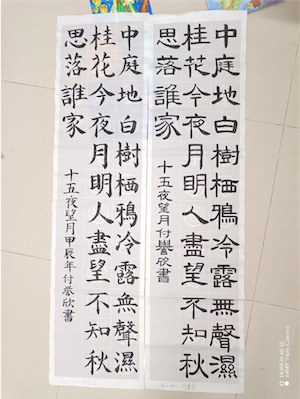 中庭地白樹栖鴉冷露無聲濕
桂花今夜月明人盡望不知秋
思落誰家
十五夜望月付譽欣書
中庭地白樹栖鴉冷露無聲濕
桂花今夜月明人盡望不知秋
思落誰家
十五夜望月甲辰年付誉欣書
HONOR 60 SE